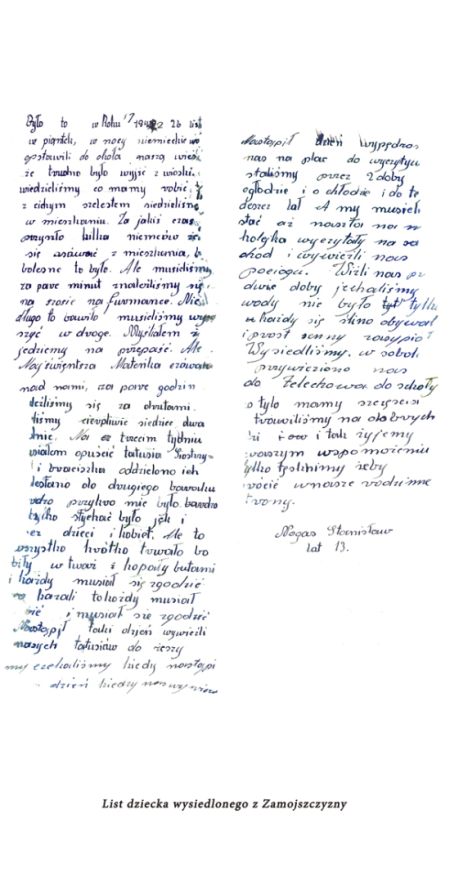 Było to w Roku 1942 26 list
w piątek, w nocy niemieckie wo
opstawili do okoła naszą wieś
że trudno było wyjść z wioski.
wiedzieliśmy co mamy robić
z cichym szelestem siedzieliśm
w mieszkaniu. Za jakiś czas
przyszło kilka niemców
się usuwać z mieszkania,
bolesne to było. Ale musieliśmy
za pare minut znaleźliśmy się
na szosie na furmance. Nie
długo to bawiło musieliśmy wyru
szyć w droge. Myślałem ż
jedziemy na przepaść. Ale
Najświentsza Matenka czuwała
nad nami, za pare godzin
dziliśmy się za drutami.
liśmy cierpliwie siedzieć dwa
dnie. Na trzecim tydniu
usiałem opuście tatusia Siostry
i braciszka oddzielono ich
dostano do drugiego baraku
przykro mie było
tylko słychać było jęk i
dzieci i kobiet, Ale to
wszystko krótko trwało bo
bily w twarz i kopały butami
i każdy musiał się zgodzić
co kazali to każdy musiał
bić i musiał sie zgodzić
Nastąpił taki dzień wywieźli
naszych tatusiów do rzeszy
my czekaliśmy kiedy nastąpi
dzień kiedy nas wywiozo
Nastąpił dzień wypędzo
nas na plac do wyczytu
staliśmy przez 2 doby
ogłodzie i o chłodzie i do te
deszcz lał A my musieli
stać aż naszła na n
kolejka wyczytały na sa
chod i wywieźli nas
pociągu. Wiźli nas pr
dwie doby jechaliśmy
wody nie było tylko
każdy się śliną obywał
i prost senny zasypiał
Wysiedliśmy, w sobot
przywieziono nas
do Żelechowa do szkoły
o tyle mamy szczęścia
trawiliśmy na dobrych
i tak żyjemy
waszym wspomożeniu
tylko tęsknimy żeby
wrócić w nasze rodzinne
trony.
Nogas Stanisław
lat 13.
List dziecka wysiedlonego z Zamojszczyzny